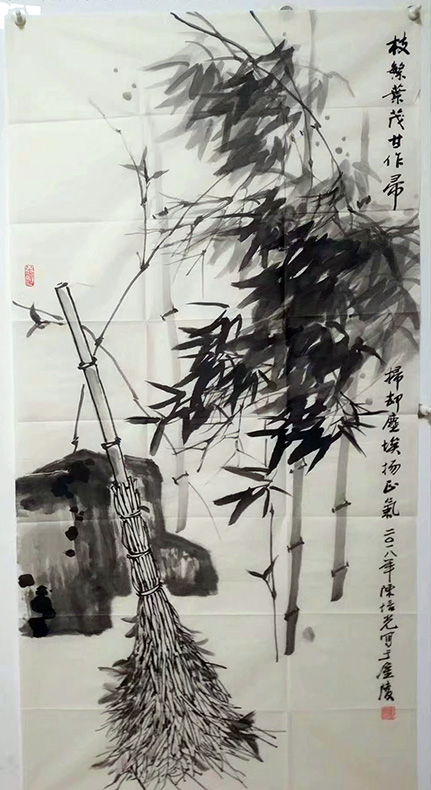 枝繁葉茂甘作帚
掃却塵埃扬正氣 二〇一八年陳培光写于金陵